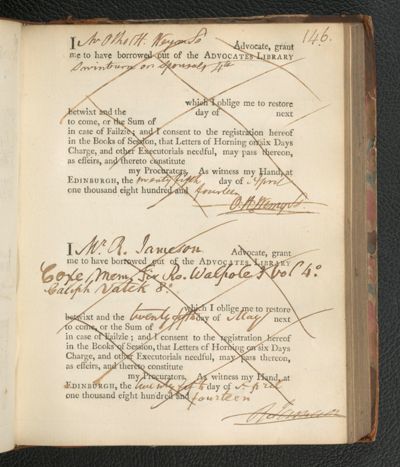 146.
I Mr Otho H. Advocate, grant
me to have borrowed out of the ADVOCATES LIBRARY
Swinburn on Spousals 4to
which I oblige me to restore
betwixt and the day of next
to come, or the Sum of
in case of Failzie; and I consent to the registration hereof
in the Books of Session, that Letters of Horning on six Days
Charge, and other Executorials needful, may pass thereon,
as effeirs, and thereto constitute
my Procurators. As witness my Hand, at
EDINBURGH, the twenty fifth day of April
one thousand eight hundred and fourteen
I Mr R. Jameson Advocate, grant
me to have borrowed out of the ADVOCATES LIBRARY
Coxe, Mem. Sir Ro. Walpole 3 vol 4o
Caliph Vatek 8o
which I oblige me to restore
betwixt and the twenty fifth day of May next
to come, or the Sum of
in case of Failzie; and I consent to the registration hereof
in the Books of Session, that Letters of Horning on six Days
Charge, and other Executorials needful, may pass thereon,
as effeirs, and thereto constitute
my Procurators. As witness my Hand, at
EDINBURGH, the twenty fifth day of April
one thousand eight hundred and fourteen